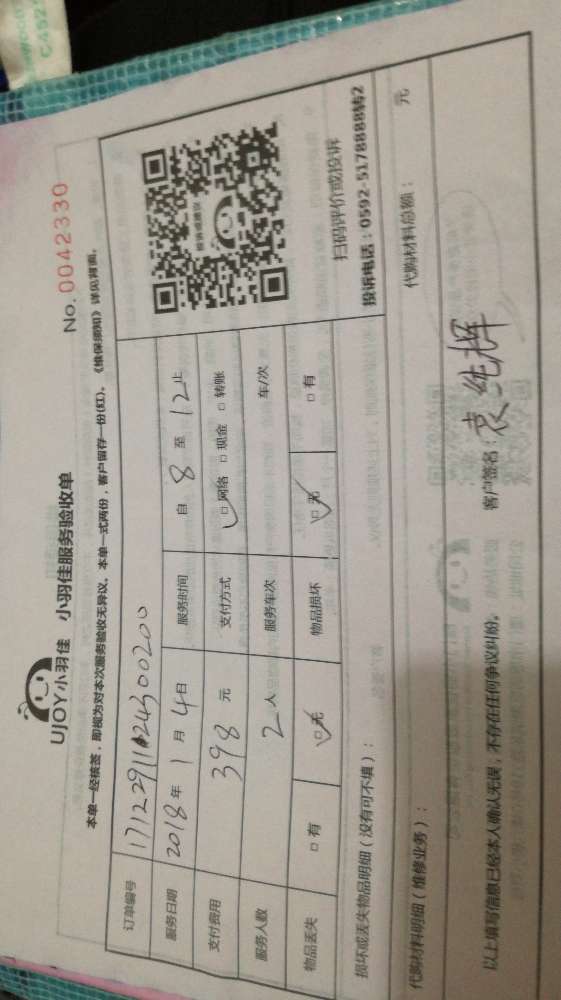 UJOY小羽佳 小羽佳服务验收单
No. 0042330
本单一经核签，即视为对本次服务验收无异议。本单一式两份，客户留存一份(红)。《维保须知》详见背面。
订单编号
服务日期 2018年 1月 4日 服务时间 自 8 至 12 止
支付费用 398 元 支付方式 □网络 □现金 □转账
服务人数 2 人 服务车次 车/次
物品丢失 □有 □无 物品损坏 □无 □有
扫码评价或投诉
投诉电话：0592-5178888转2
损坏或丢失物品明细（没有可不填）：
代购材料明细（维修业务）： 代购材料总额： 元
以上填写信息已经本人确认无误，不存在任何争议纠纷。 客户签名：袁纯辉